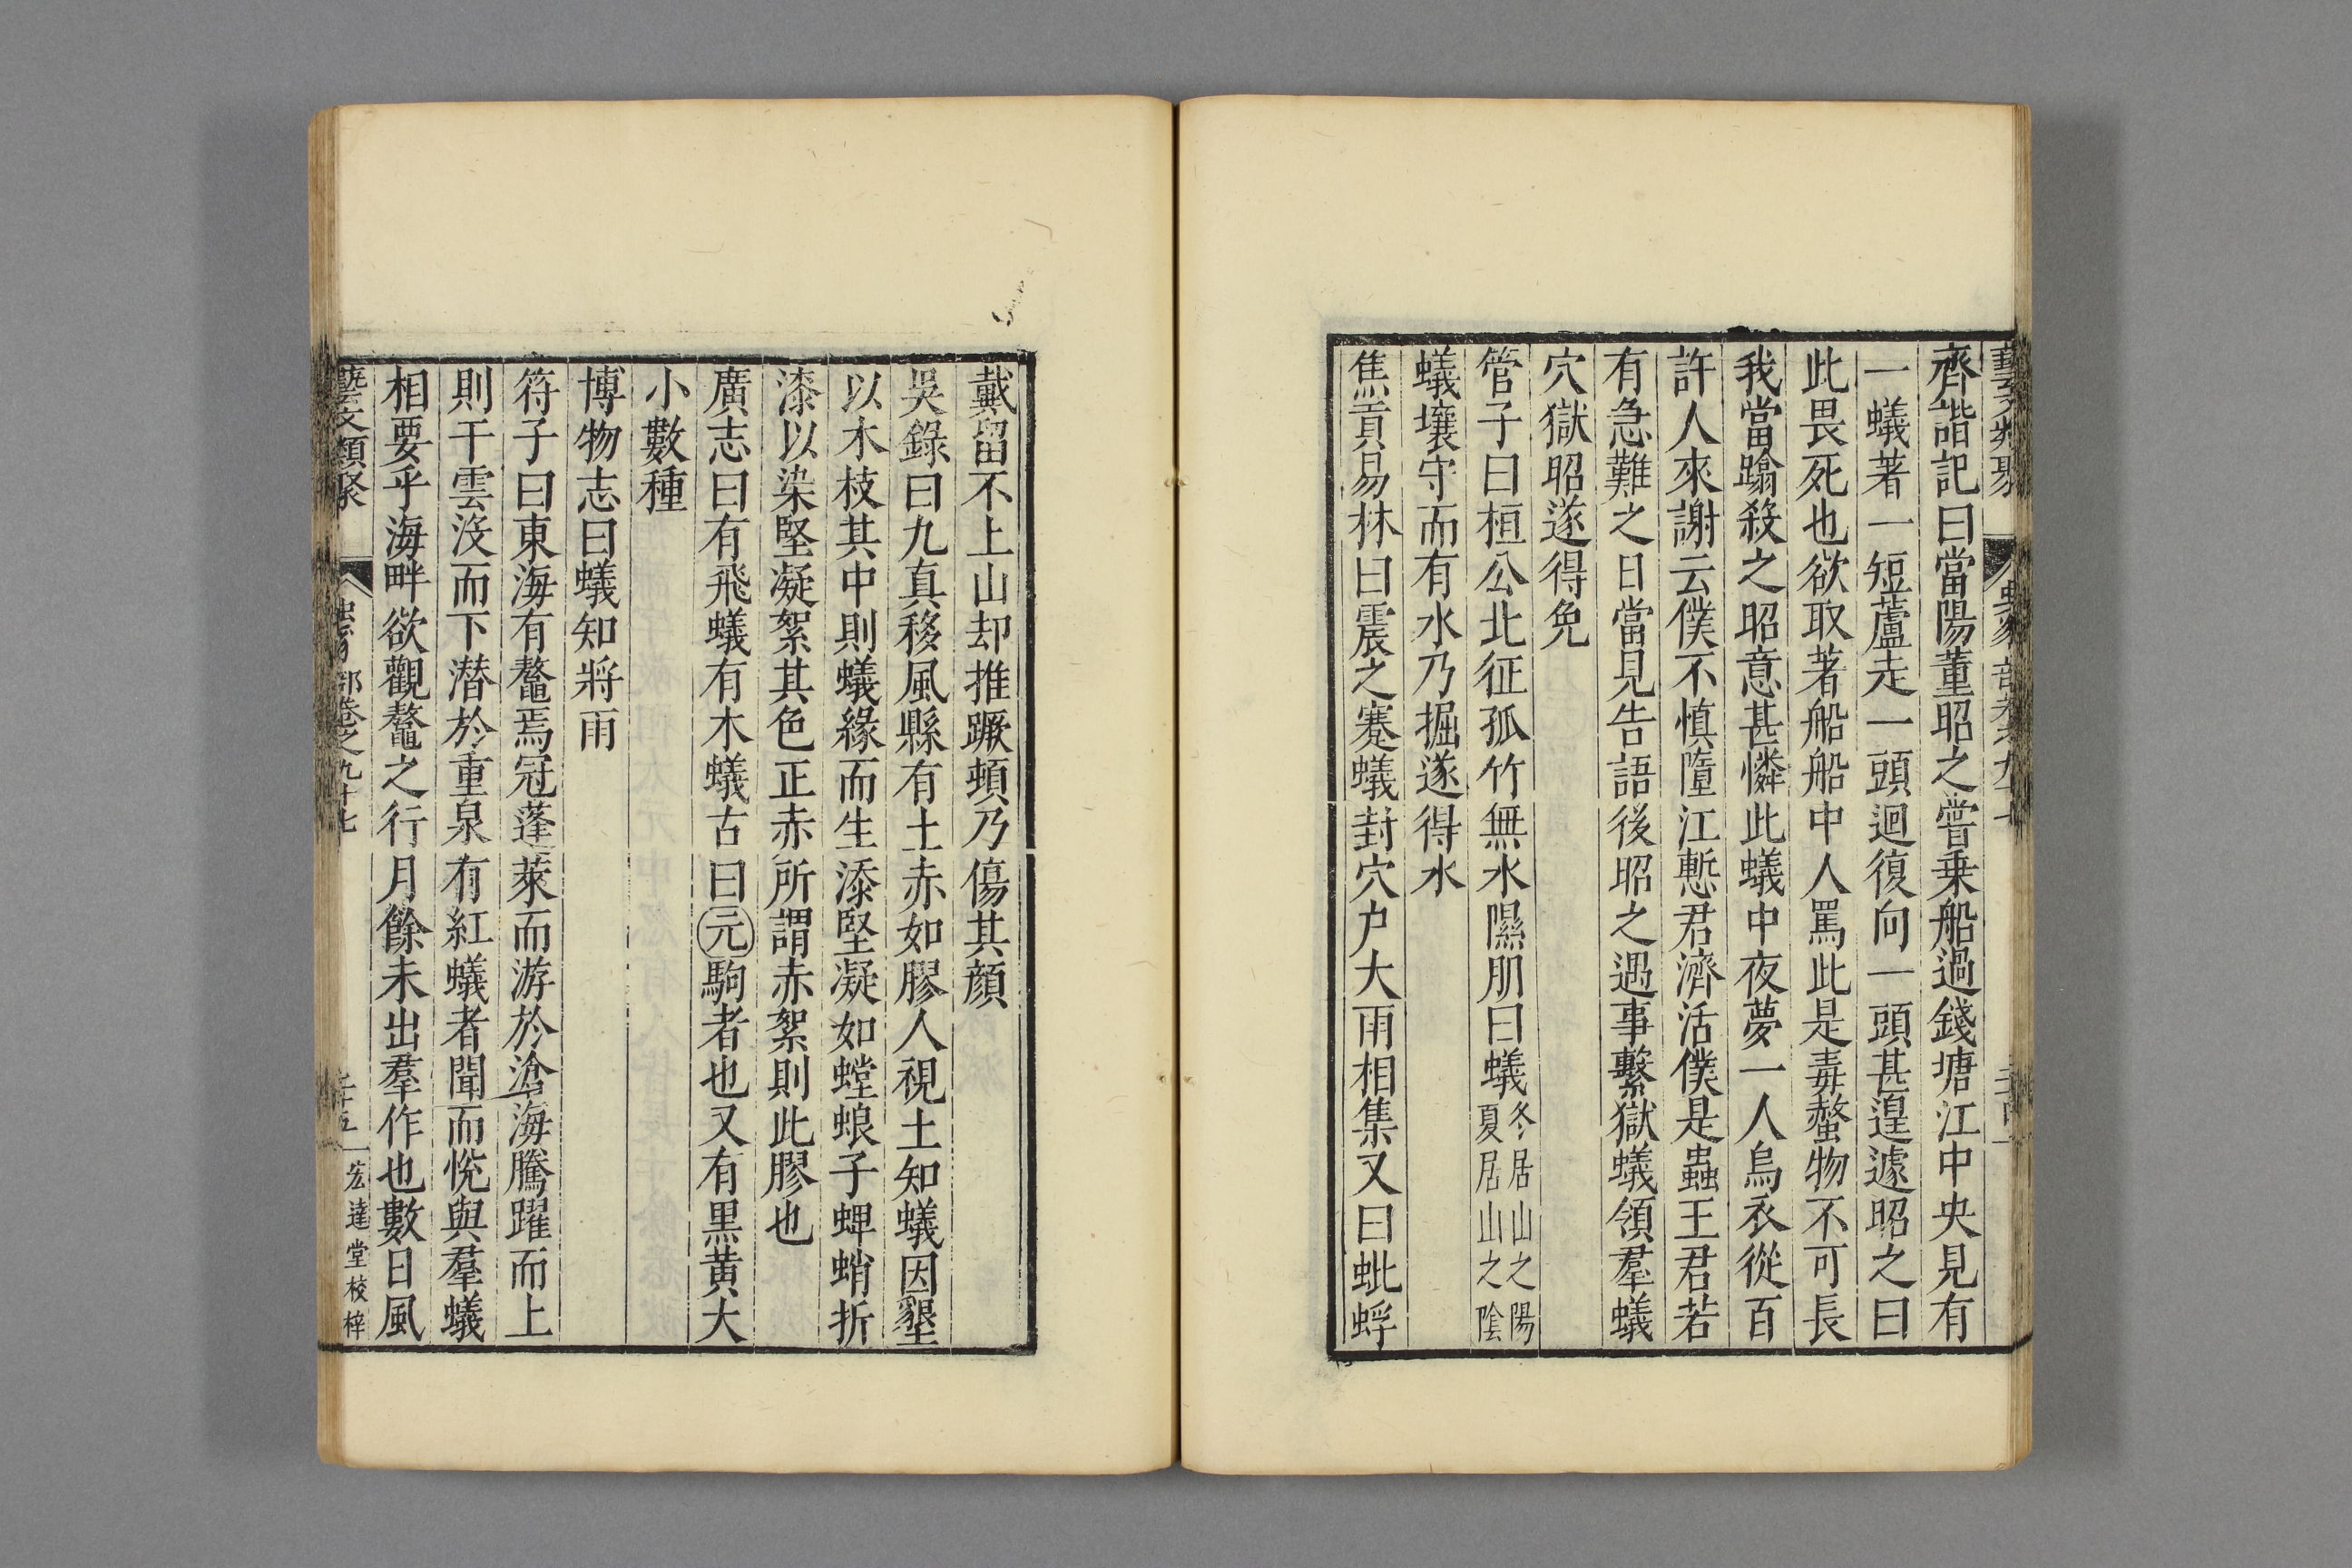 齊諧記曰當陽董昭之嘗乗船過錢塘江中央見有
一蟻著一短蘆走一頭迴復向一頭甚遑遽昭之曰
此畏死也欲取著船船中人罵此是毒螫物不可長
我當蹹殺之昭意甚憐此蟻中夜夢一人烏衣從百
許人來謝云僕不慎墮江慙君濟活僕是蟲王君若
有急難之日當見告語後昭之遇事繫獄蟻領羣蟻
穴獄昭遂得免
管子曰桓公北征孤竹無水隰朋曰蟻冬居山之陽夏居山之陰
蟻壤守而有水乃掘遂得水
焦貢易林曰震之蹇蟻封穴户大雨相集又曰蚍蜉
戴留不上山却推蹶頓乃傷其顔
吳錄曰九真移風縣有土赤如膠人視土知蟻因墾
以木枝其中則蟻緣而生漆堅凝如螳蜋子蜱蛸折
漆以染堅凝絮其色正赤所謂赤絮則此膠也
廣志曰有飛蟻有木蟻古曰元駒者也又有黒黄大
小數種
博物志曰蟻知將雨
符子曰東海有鼇焉冠蓬萊而游於滄海騰躍而上
則干雲沒而下潜於重泉有紅蟻者聞而恱與羣蟻
相要乎海畔欲觀鼇之行月餘未出羣作也數日風
藝文類聚 部卷之九十七 宏達堂校梓